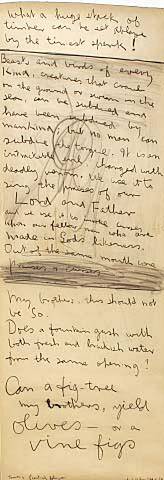 What a huge stack of
timber can be set ablaze
by the tiniest spark!
Beasts and birds of every
kind, creatures that crawl
on the ground or swim in the
sea, can be subdued and
have been subdued by
mankind; but no man can
subdue the tongue. It is an
intractable evil, charged with
deadly venom. We use it to
sing the praises of our
Lord and Father
and we use it to invoke curses
upon our fellow men who are
made in God's likeness.
Out of the same mouth come
Praises & curses
My brothers, this should not
be so.
Does a fountain gush with
both fresh and brackish water
from the same opening?
Can a fig-tree
my brothers, yield
olives — or a
vine figs